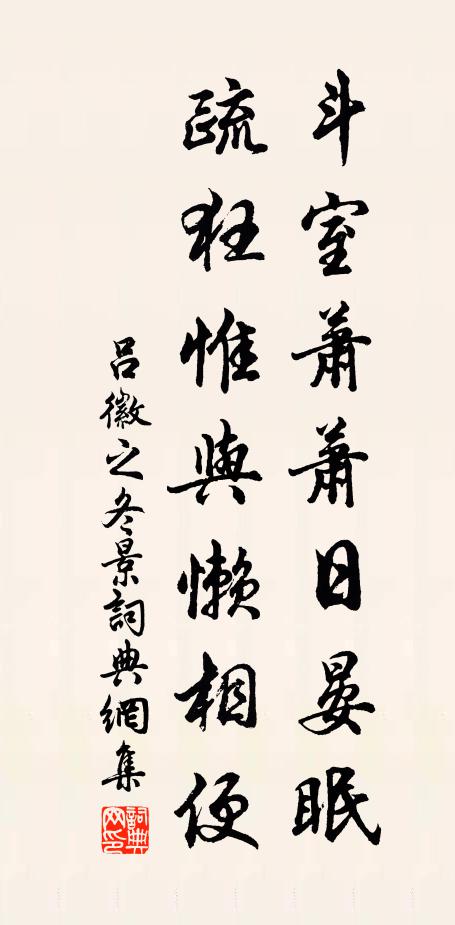 斗室蕭蕭日晏眠
疏狂惟與懶相便
呂徽之冬景詞典網集
詞典网印